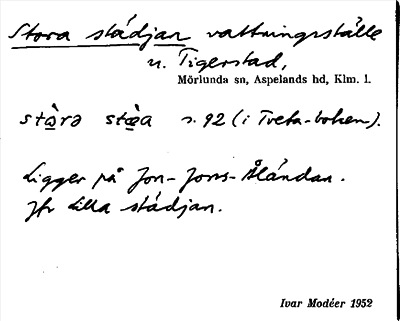 Stora städjan vattningsställe
n. Tigerstad,
Mörlunda sn, Aspelands hd, Klm. l.
s. 92 (i Tveta-boken).
Ligger på Jon-Jons-Åländan.
Jfr Lilla städjan.
Ivar Modéer 1952